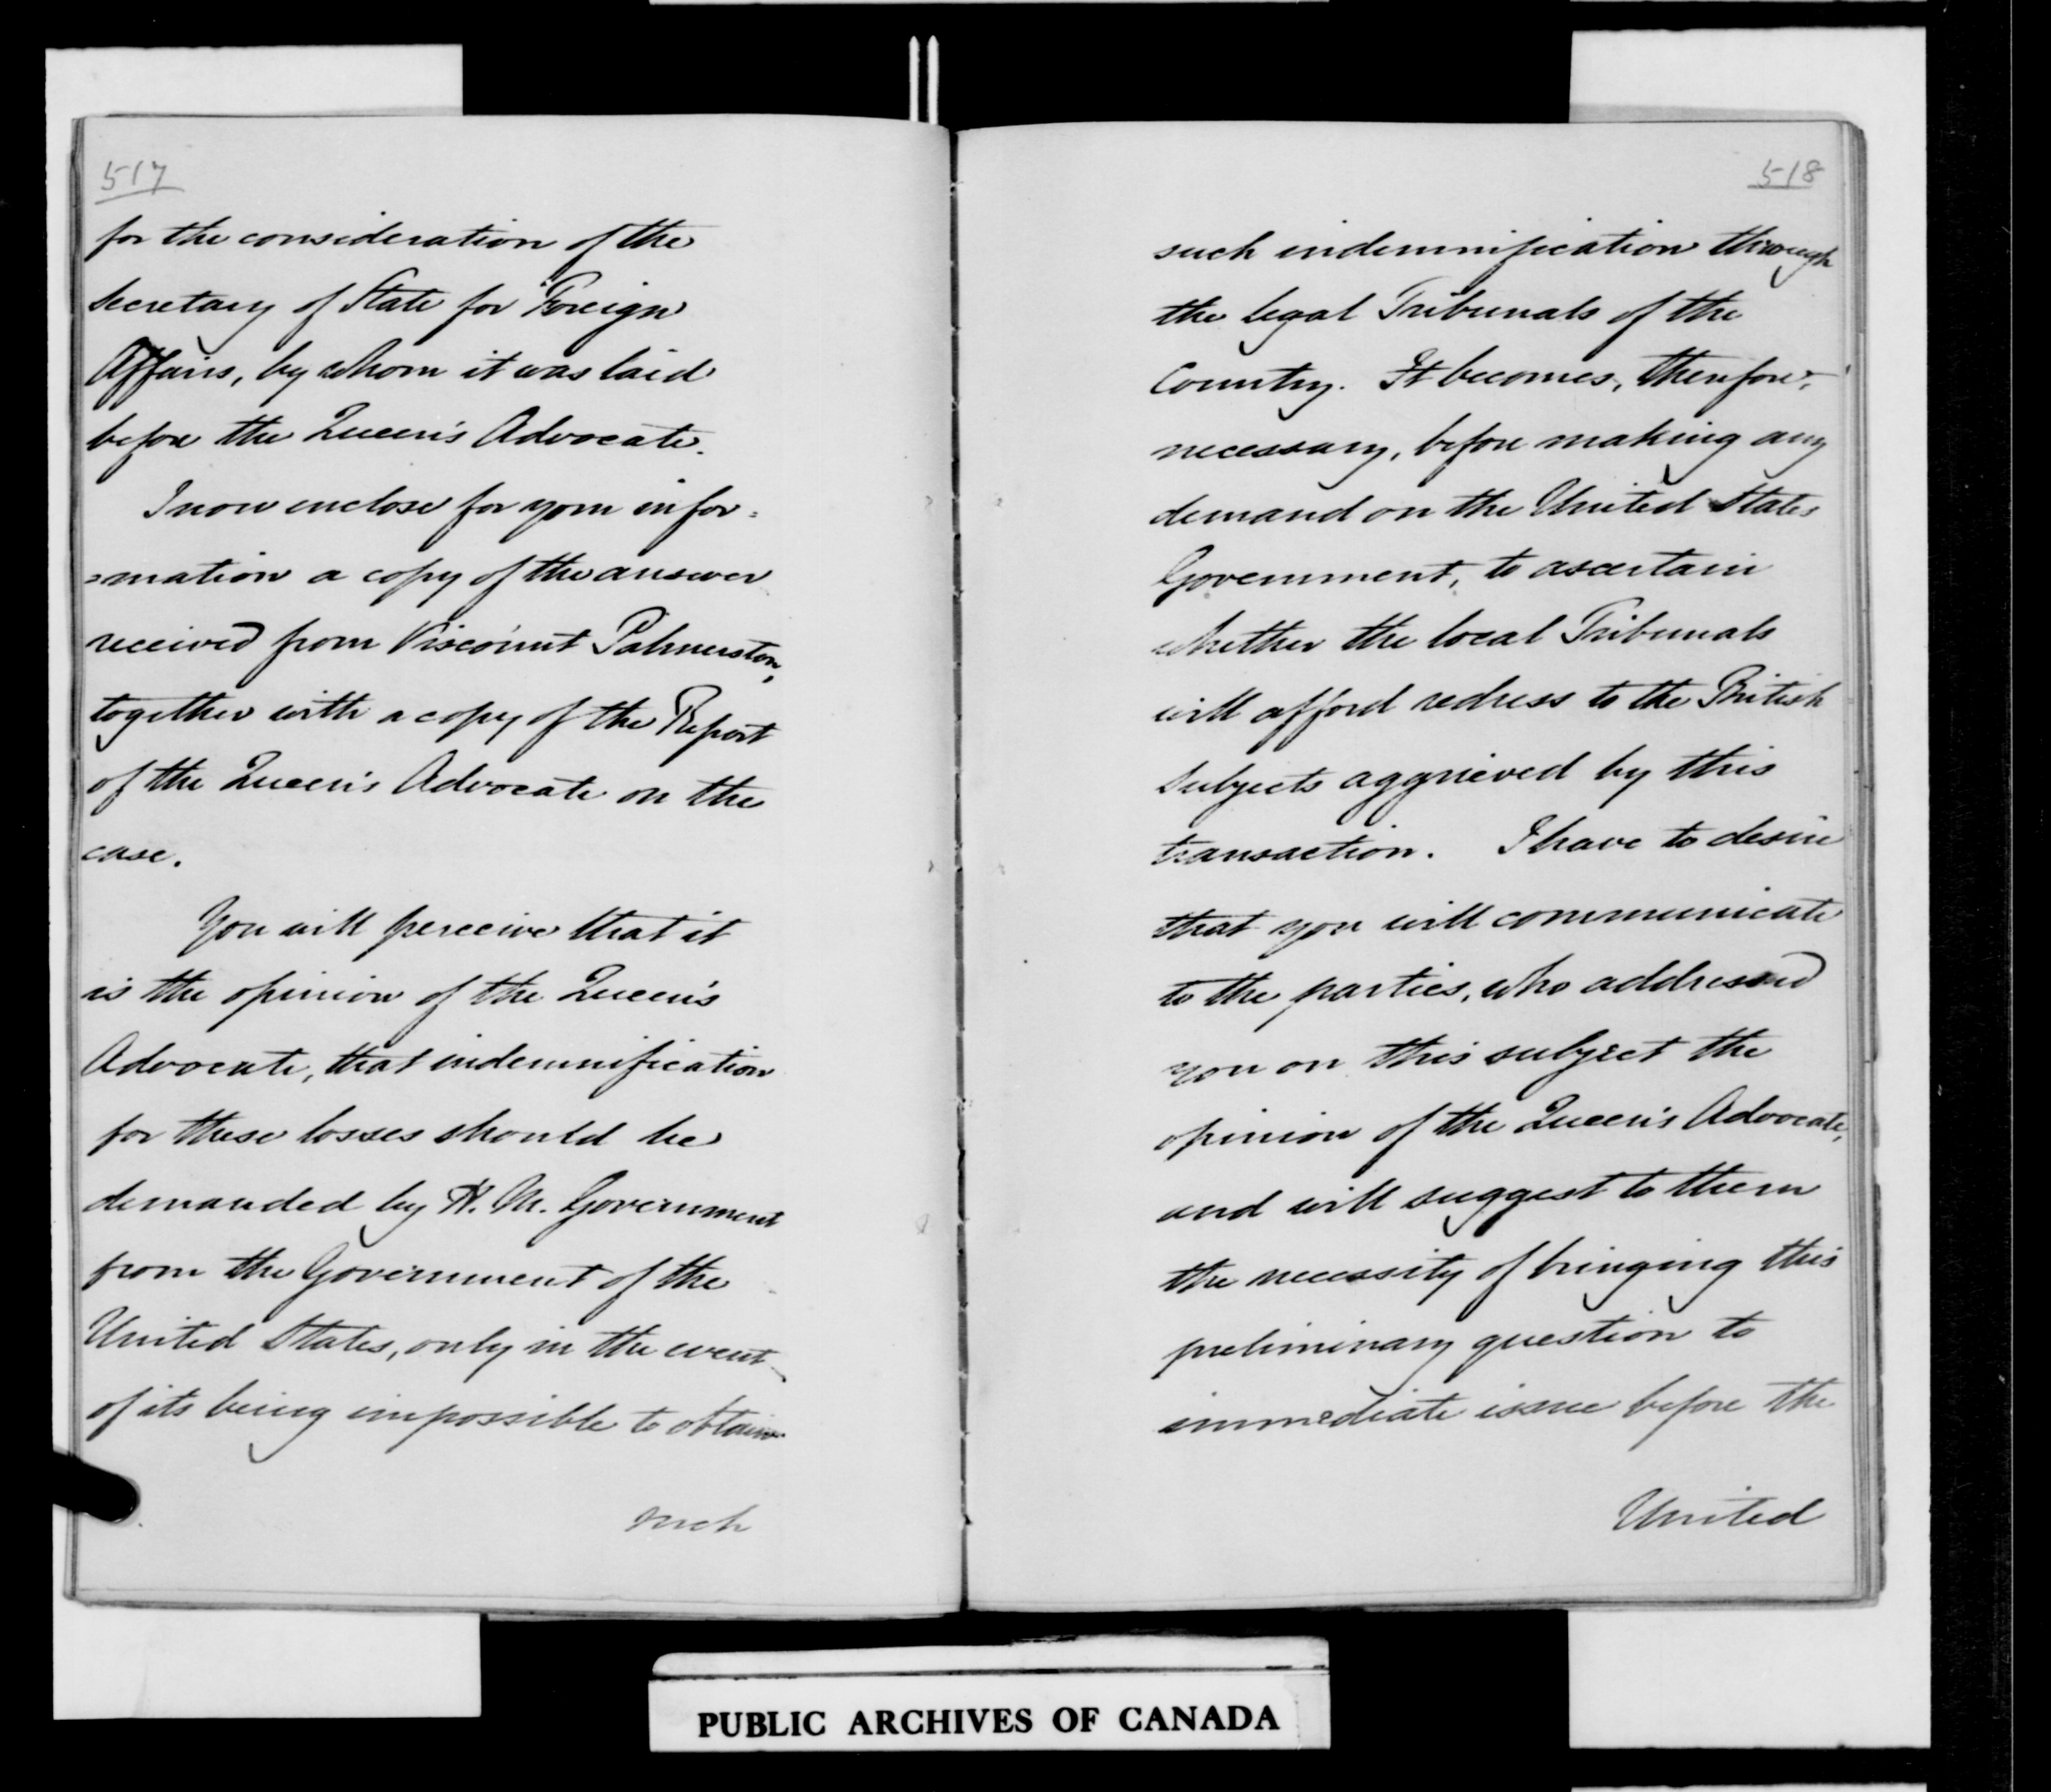 517
for the consideration of the
Secretary of State for Foreign
Affairs, by whom it was laid
before the Queen's Advocate.
I now enclose for your infor=
=mation a copy of the answer
received from Viscount Palmerston,
together with a copy of the Report
of the Queen's Advocate on the
case.
You will perceive that it
is the opinion of the Queen's
Advocate, that indemnification
for these losses should be
demanded by H. M. Government
from the Government of the
United States, only in the event
of its being impossible to obtain
such
518
such indemnification through
the legal Tribunals of the
Country. It becomes, therefore,
necessary, before making any
demand on the United States
Government, to ascertain
whether the local Tribunals
will afford redress to the British
subjects aggrieved by this
transaction. I have to desire
that you will communicate
to the parties, who addressed
you on this subject the
opinion of the Queen's Advocate,
and will suggest to them
the necessity of bringing this
preliminary question to
immediate issue before the
United
PUBLIC ARCHIVES OF CANADA